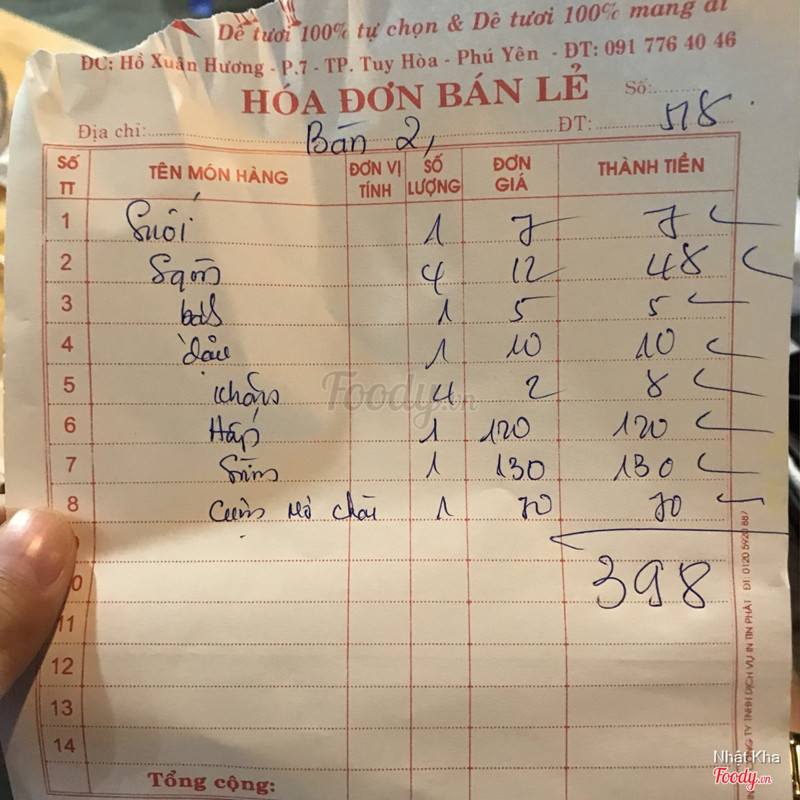 Dê tươi 100% tự chọn & Dê tươi 100% mang đi
ĐC: Hồ Xuân Hương - P.7 - TP. Tuy Hòa - Phú Yên - ĐT: 091 776 40 46
HÓA ĐƠN BÁN LẺ Số:
Địa chỉ: Bán 2, ĐT: 5/8
Số TT TÊN MÓN HÀNG ĐƠN VỊ TÍNH SỐ LƯỢNG ĐƠN GIÁ THÀNH TIỀN
1 Suối 1 7 7
2 4 12 48
3 1 5 5
4 đậu 1 10 10
5 khăn 4 2 8
6 Hấp 1 120 120
7 1 130 130
8 Cuốn mỡ chài 1 70 70
398
10
11
12
13
14
Tổng cộng:
TY TNHH DỊCH VỤ IN TÍN PHÁT ĐT: 0120 5920 887
Foody.vn
Nhật Kha
Foody.vn